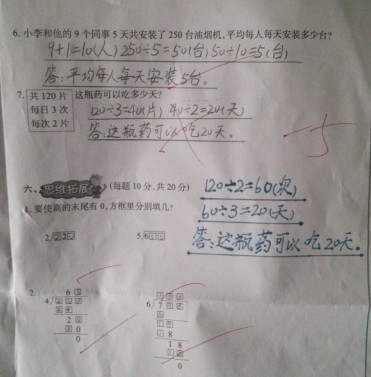 6. 小李和他的 9 个同事 5 天共安装了 250 台油烟机,平均每人每天安装多少台?
9+1=10(人) 250÷5=50(台) 50÷10=5(台)
答:平均每人每天安装5台。
7. 共 120 片 这瓶药可以吃多少天?
每日 3 次
每次 2 片
120÷3=40(片) 40÷2=20(天)
答:这瓶药可以吃20天。
-5
六、思维拓展。(每题 10 分,共 20 分)
120÷2=60(次)
60÷3=20(天)
答:这瓶药可以吃20天。
1. 要使商的末尾有 0,方框里分别填几?
2.
6
4
2
0
0
6
7
8
1 8
0